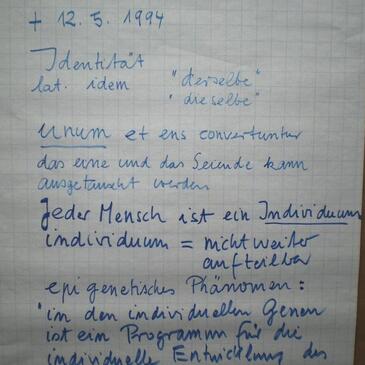 + 12. 5. 1994
Identität
lat. idem "derselbe"
"dieselbe"
unum et ens convertuntur
das eine und das Seiende kann
ausgetauscht werden
Jeder Mensch ist ein Individuum
individuum = nicht weiter
aufteilbar
epigenetisches Phänomen:
"in den individuellen Genen
ist ein Programm für die
individuelle Entwicklung des